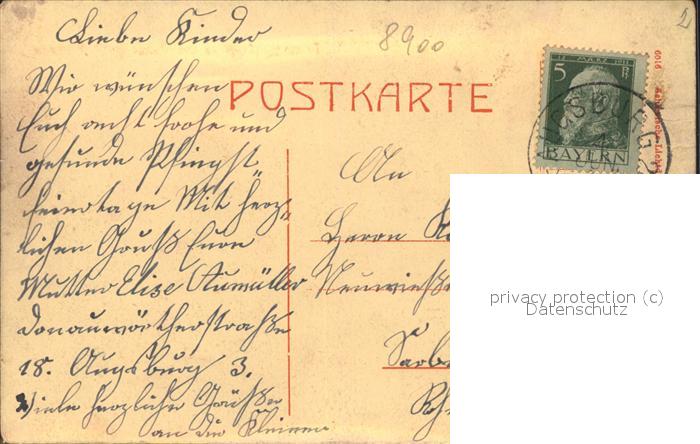 Liebe Kinder
8900
2
Wir wünschen
Euch recht frohe und
gesunde Pfingst„
feiertage Mit herz„
lichen Gruß Eure
Mutter Elise Aumüller
Donauwörtherstraße
18. Augsburg 3.
Viele herzliche Grüße
an die Kleinen
POSTKARTE
11 MÄRZ 1911
5 Pf
BAYERN
6016
An
Herrn
Neuwieß
privacy protection (c)
Datenschutz
Saarb
Rh